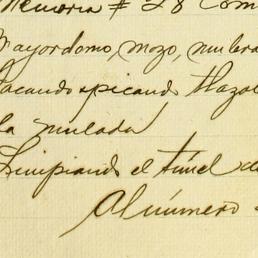 Memoria # 28 Com
Mayordomo, mozo, mulera
Sacando y picando tlazol
la mulada
Limpiando el túnel de
Al número